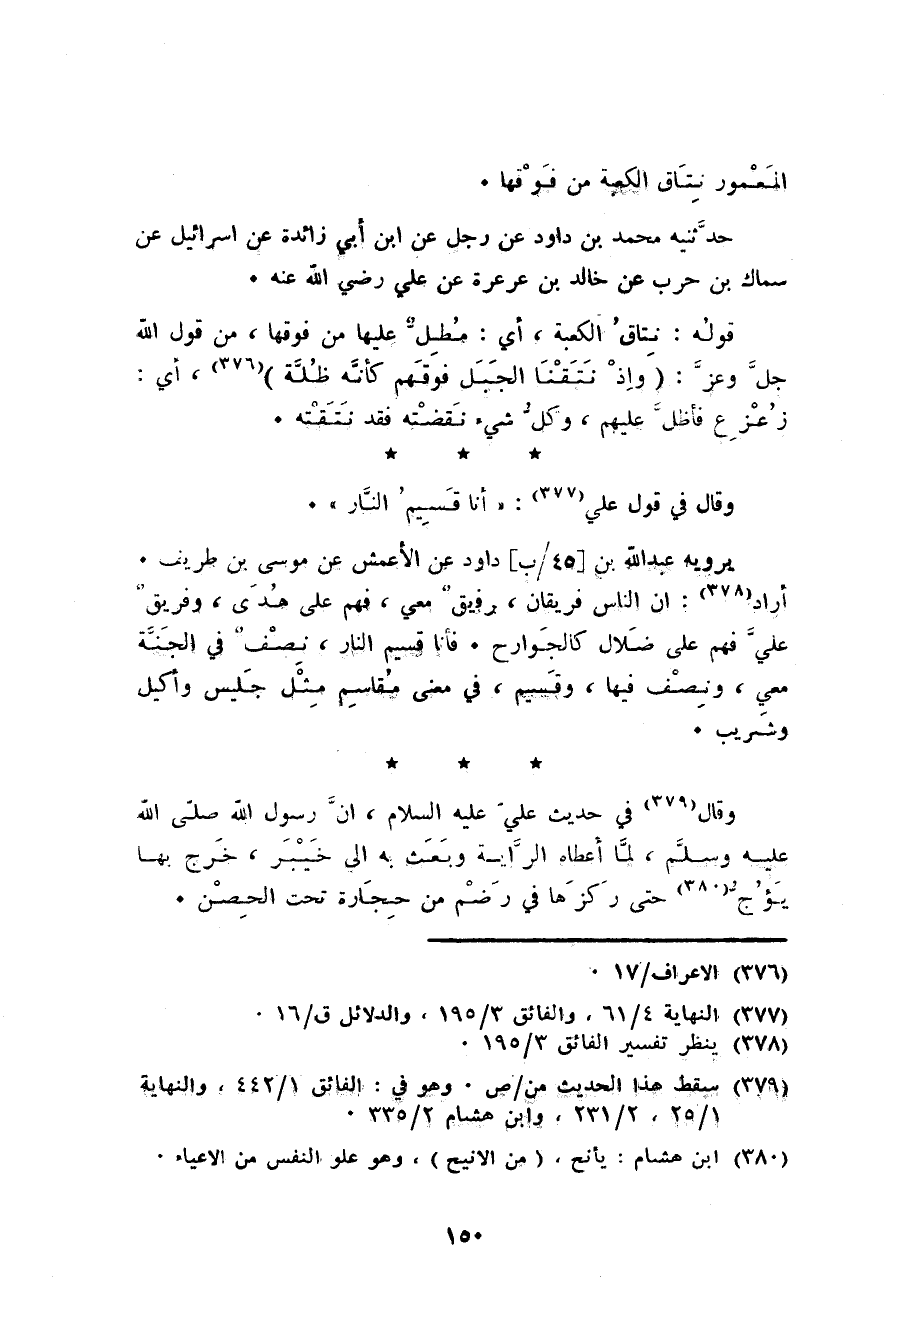 المَعْمور نِتَاق الكعبة من فَوْقها ٠
حدَّثنيه محمد بن داود عن رجل عن ابن أبي زائدة عن اسرائيل عن
سماك بن حرب عن خالد بن عرعرة عن علي رضي الله عنه ٠
قوله : نِتاقُ الكعبة ، أي : مُطِلٌّ عليها من فوقها ، من قول الله
جلَّ وعزَّ : ( وإذْ نَتَقْنَا الجَبَل فوقَهم كأنَّه ظُلَّة )(٣٧٦) ، أي :
زُعْزِع فأظلَّ عليهم ، وكلُّ شيء نَقَضْته فقد نَتَقْته ٠
★ ★ ★
وقال في قول علي(٣٧٧) : « أنا قَسِيمُ النَّار » ٠
يرويه عبدالله بن [٤٥/ب] داود عن الأعمش عن موسى بن طريف ٠
أراد(٣٧٨) : ان الناس فريقان ، فريقٌ معي ، فهم على هُدَى ، وفريقٌ
عليَّ فهم على ضَلال كالخوارج ٠ فأنا قسيم النار ، نِصْفٌ في الجَنَّة
معي ، ونِصْف فيها ، وقَسِيم ، في معنى مُقاسِم مِثْل جَليس وأكيل
وشَريب ٠
★ ★ ★
وقال(٣٧٩) في حديث عليّ عليه السلام ، انَّ رسول الله صلّى الله
عليه وسلَّم ، لمَّا أعطاه الرَّاية وبَعَث به الى خَيْبَر ، خَرج بها
يَؤُجّ(٣٨٠) حتى رَكزَها في رَضْم من حِجَارة تحت الحِصْن ٠
(٣٧٦) الاعراف/١٧ ٠
(٣٧٧) النهاية ٦١/٤ ، والفائق ١٩٥/٣ ، والدلائل ق/١٦ ٠
(٣٧٨) ينظر تفسير الفائق ١٩٥/٣ ٠
(٣٧٩) سقط هذا الحديث من/ص ٠ وهو في : الفائق ٤٤٢/١ ، والنهاية
٢٥/١ ، ٢٣١/٢ ، وابن هشام ٣٣٥/٢ ٠
(٣٨٠) ابن هشام : يأنح ، ( من الانيح ) ، وهو علو النفس من الاعياء ٠
١٥٠